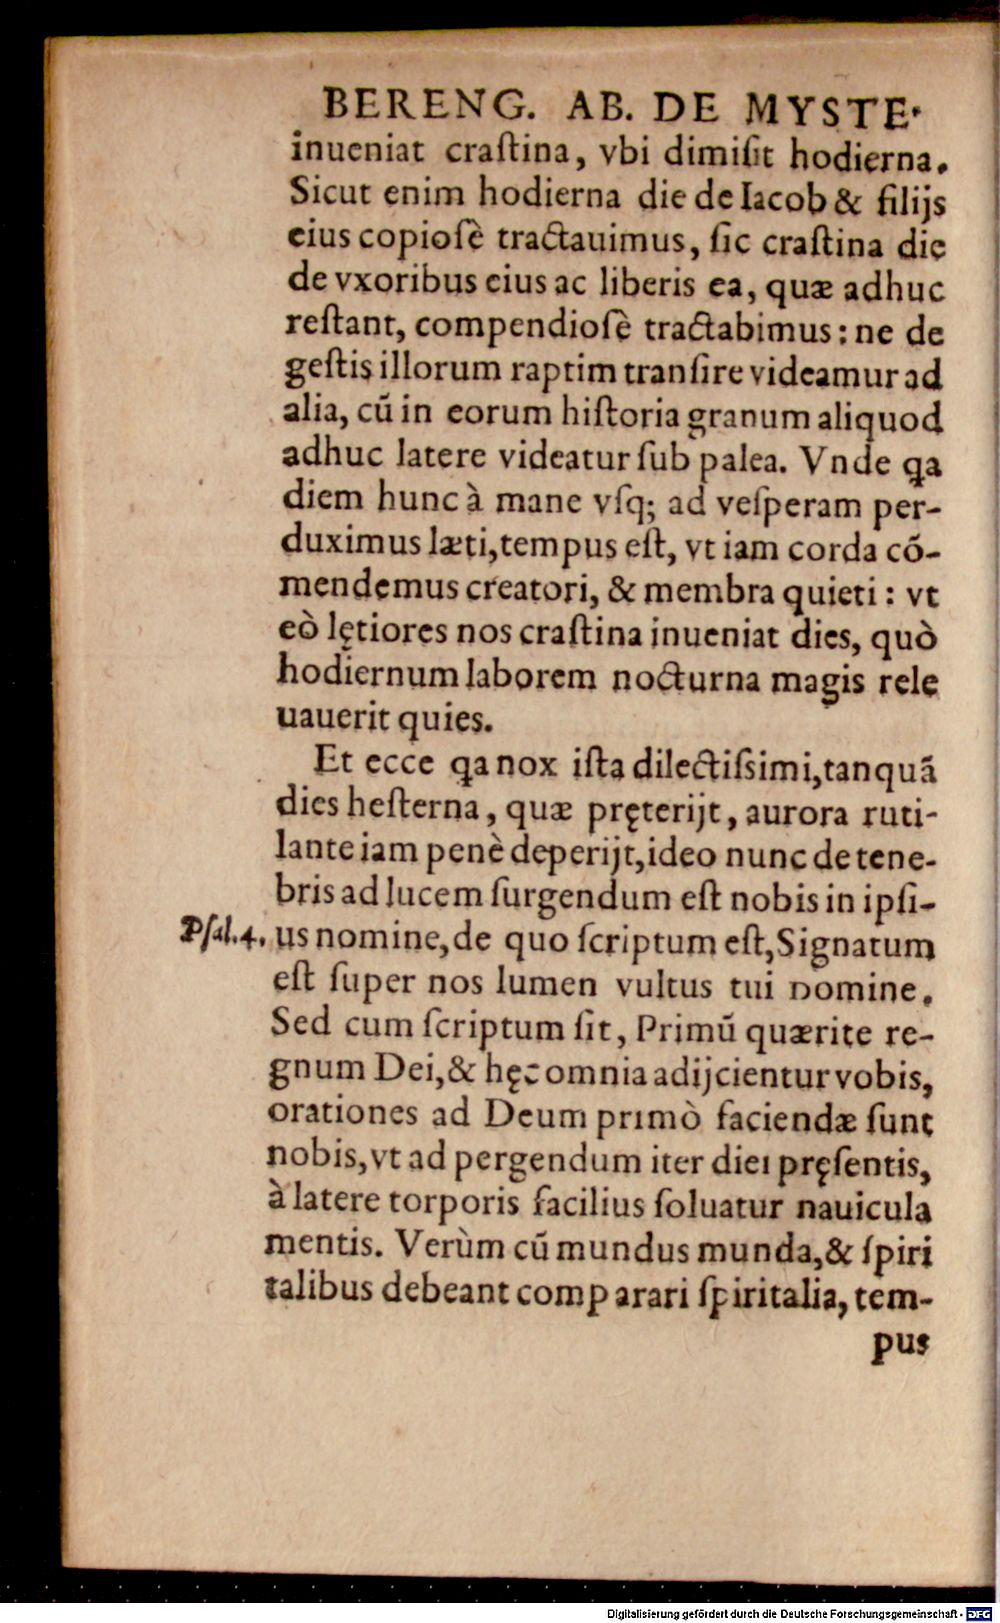 BERENG. AB. DE MYSTE.
inueniat craſtina, vbi dimiſit hodierna.
Sicut enim hodierna die de Iacob & filijs
eius copioſè tractauimus, ſic craſtina die
de vxoribus eius ac liberis ea, quæ adhuc
reſtant, compendioſè tractabimus: ne de
geſtis illorum raptim tranſire videamur ad
alia, cũ in eorum hiſtoria granum aliquod
adhuc latere videatur ſub palea. Vnde ꝗa
diem hunc à mane vſq; ad veſperam per-
duximus læti, tempus eſt, vt iam corda cõ-
mendemus creatori, & membra quieti: vt
eò lętiores nos craſtina inueniat dies, quò
hodiernum laborem nocturna magis rele
uauerit quies.
Et ecce ꝗa nox iſta dilectiſsimi, tanquã
dies heſterna, quæ pręterijt, aurora ruti-
lante iam penè deperijt, ideo nunc de tene-
bris ad lucem ſurgendum eſt nobis in ipſi-
Pſal. 4. us nomine, de quo ſcriptum eſt, Signatum
eſt ſuper nos lumen vultus tui domine.
Sed cum ſcriptum ſit, Primũ quærite re-
gnum Dei, & hęc omnia adijcientur vobis,
orationes ad Deum primò faciendæ ſunt
nobis, vt ad pergendum iter diei pręſentis,
à latere torporis facilius ſoluatur nauicula
mentis. Verùm cũ mundus munda, & ſpiri
talibus debeant comparari ſpiritalia, tem-
pus
Digitalisierung gefördert durch die Deutsche Forschungsgemeinschaft - DFG